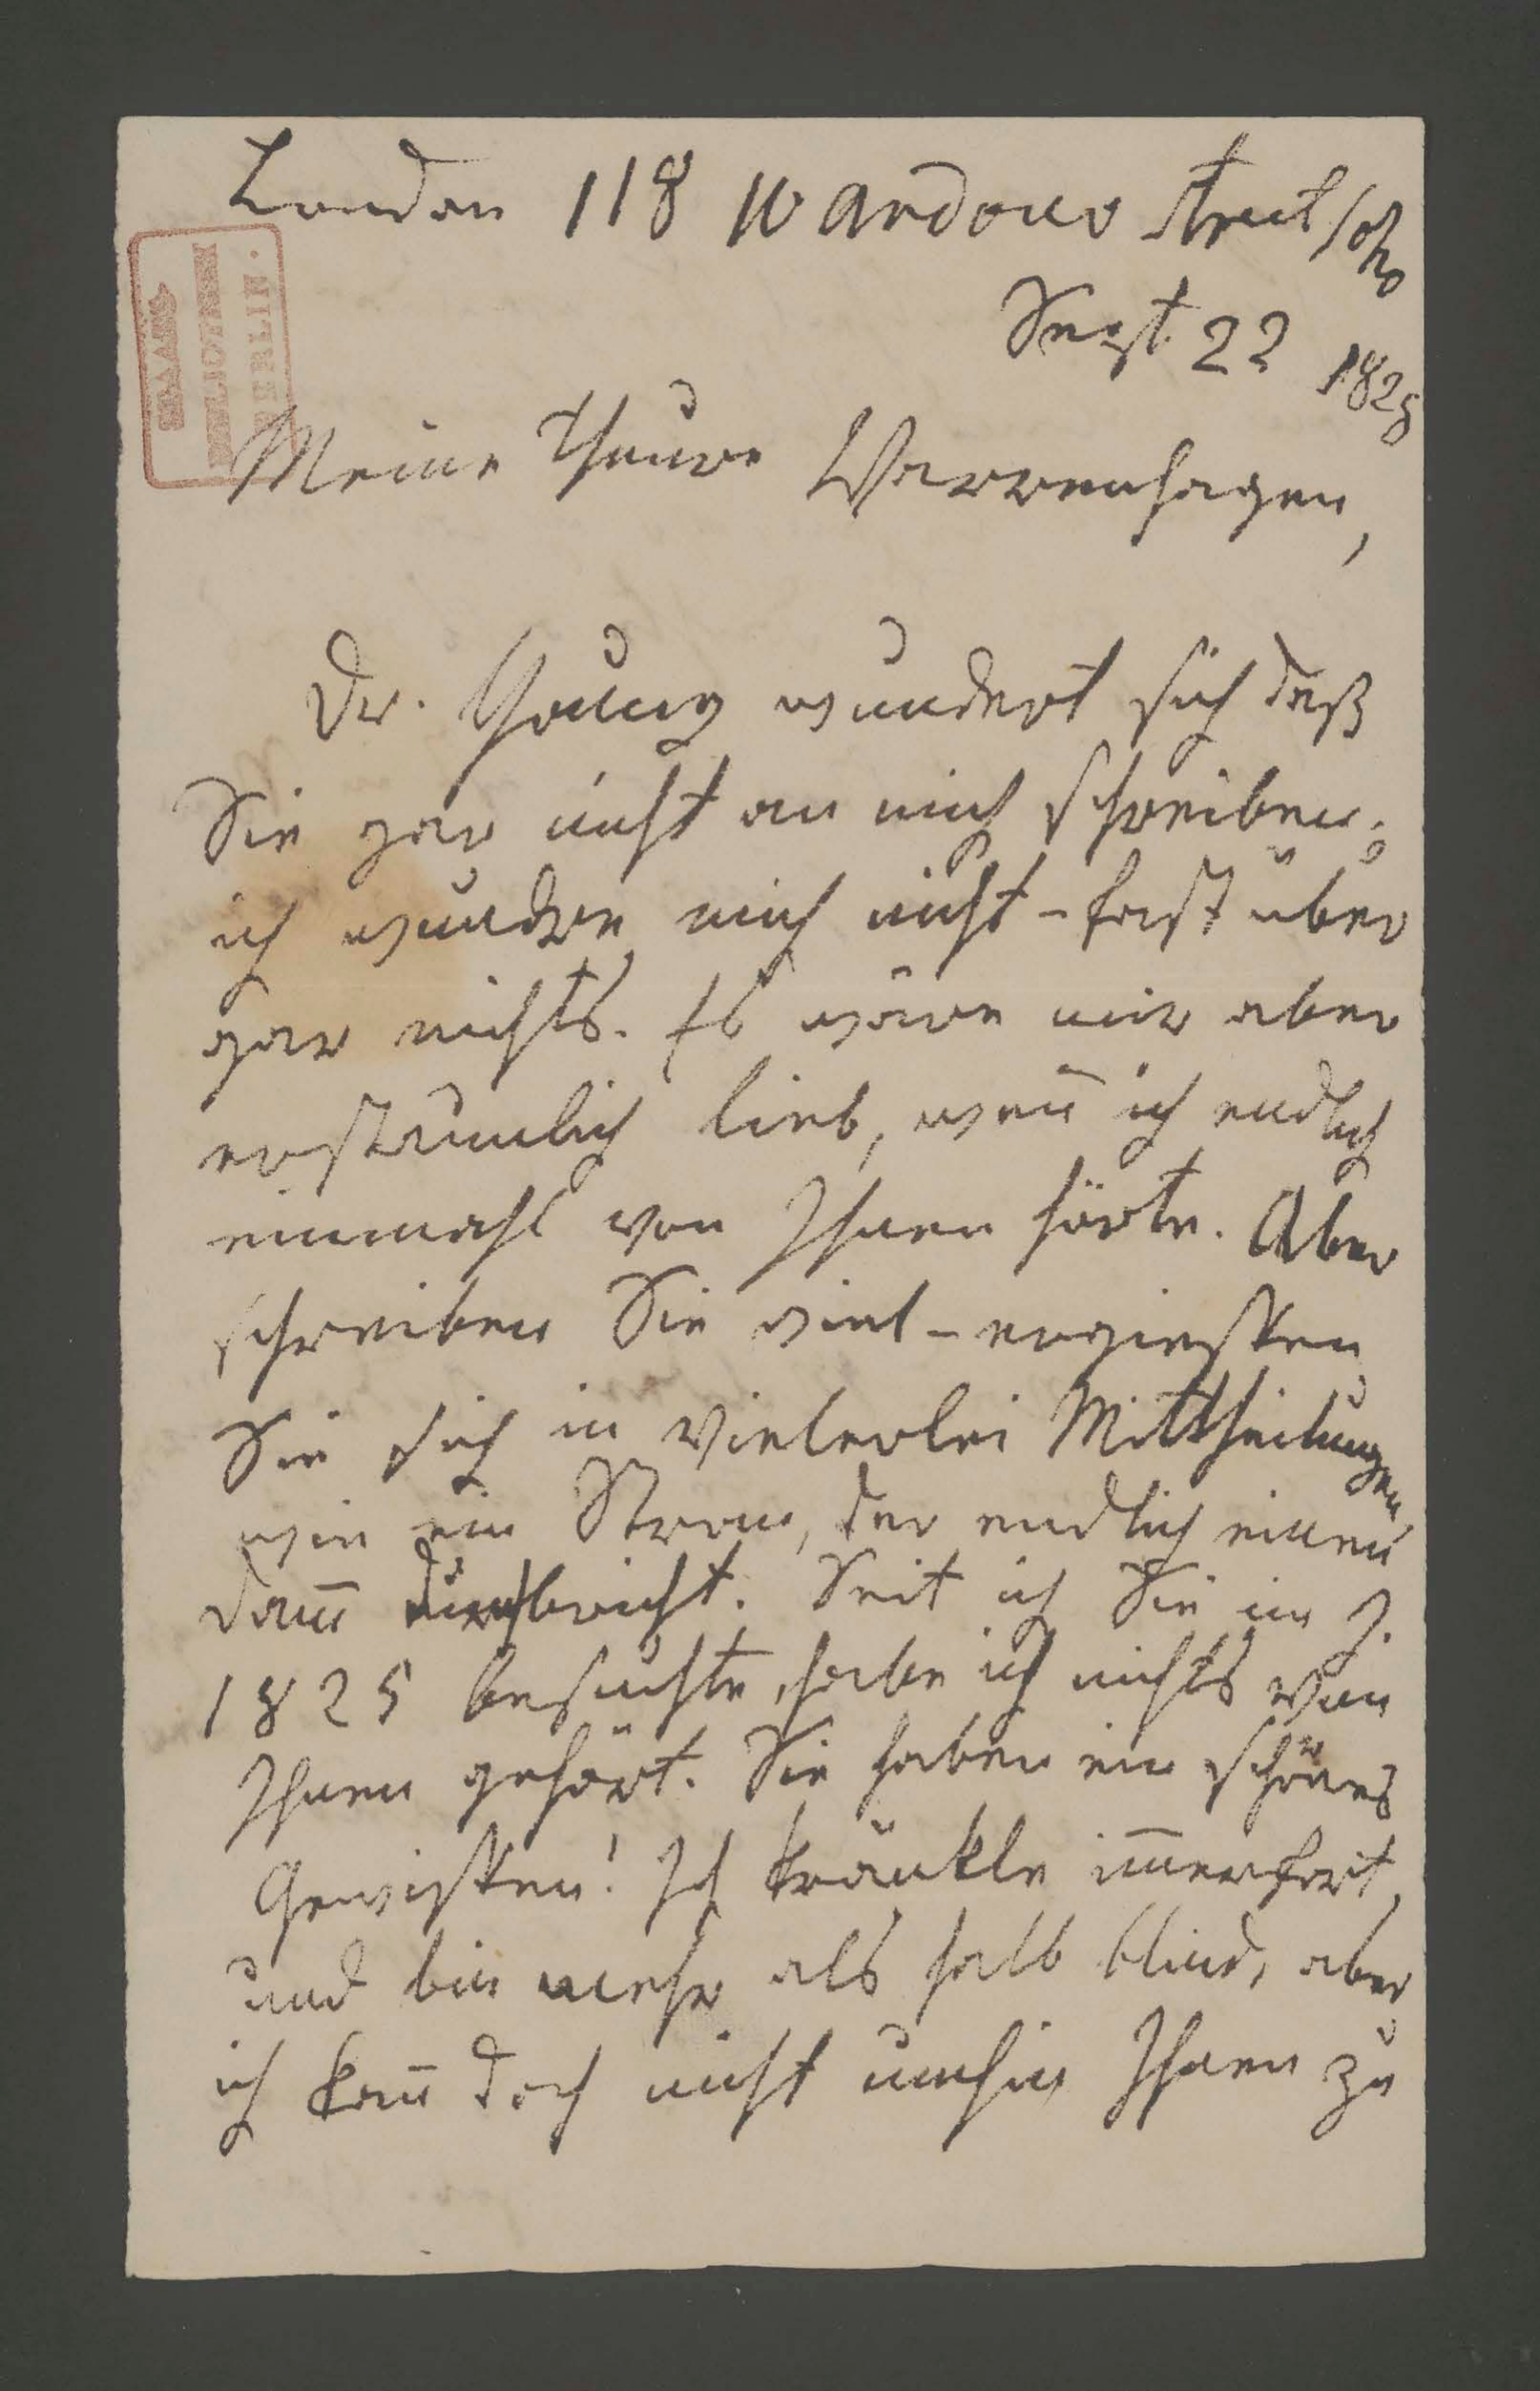 London 118 Wardour Street Soho
Sept 22 1828
STAATS
BIBLIOTHEK
BERLIN.
Meine theure Varrenhagen,
Dr. Young wundert sich daß
Sie gar nicht an mich schreiben;
ich wundre mich nicht – fast über
gar nichts. Es wäre mir aber
erstaunlich lieb, weñ ich endlich
einmahl von Ihnen hörte. Aber
schreiben Sie viel – ergießen
Sie sich in vielerlei Mittheilungen,
wie ein Strom, der endlich einen
Dam̄ durchbricht. Seit ich Sie im J.
1825 besuchte, habe ich nichts von
Ihnen gehört. Sie haben ein schönes
Gewissen! Ich kränkle im̄erfort,
und bin mehr als halb blind, aber
ich kañ doch nicht umhin Ihnen zu